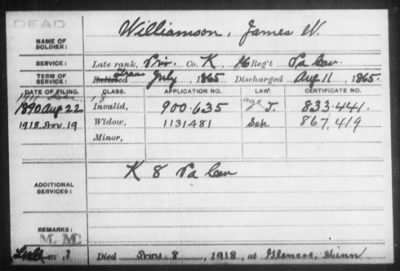 DEAD
NAME OF SOLDIER: Williamson, James W.
SERVICE: Late rank, Priv. Co. K, 16 Reg't Pa Cav
TERM OF SERVICE: Enlisted Trans July, 1865 Discharged Aug 11, 1865.
DATE OF FILING. CLASS. APPLICATION NO. LAW. CERTIFICATE NO.
1890 Aug 22 Invalid, 900.635 J. 833.441.
1918. Nov. 19 Widow, 1131481 867,419
Minor,
ADDITIONAL SERVICES: K 8 Pa Cav
REMARKS:
M. M.
Died Nov. 8, 1918, at Glencoe, Minn